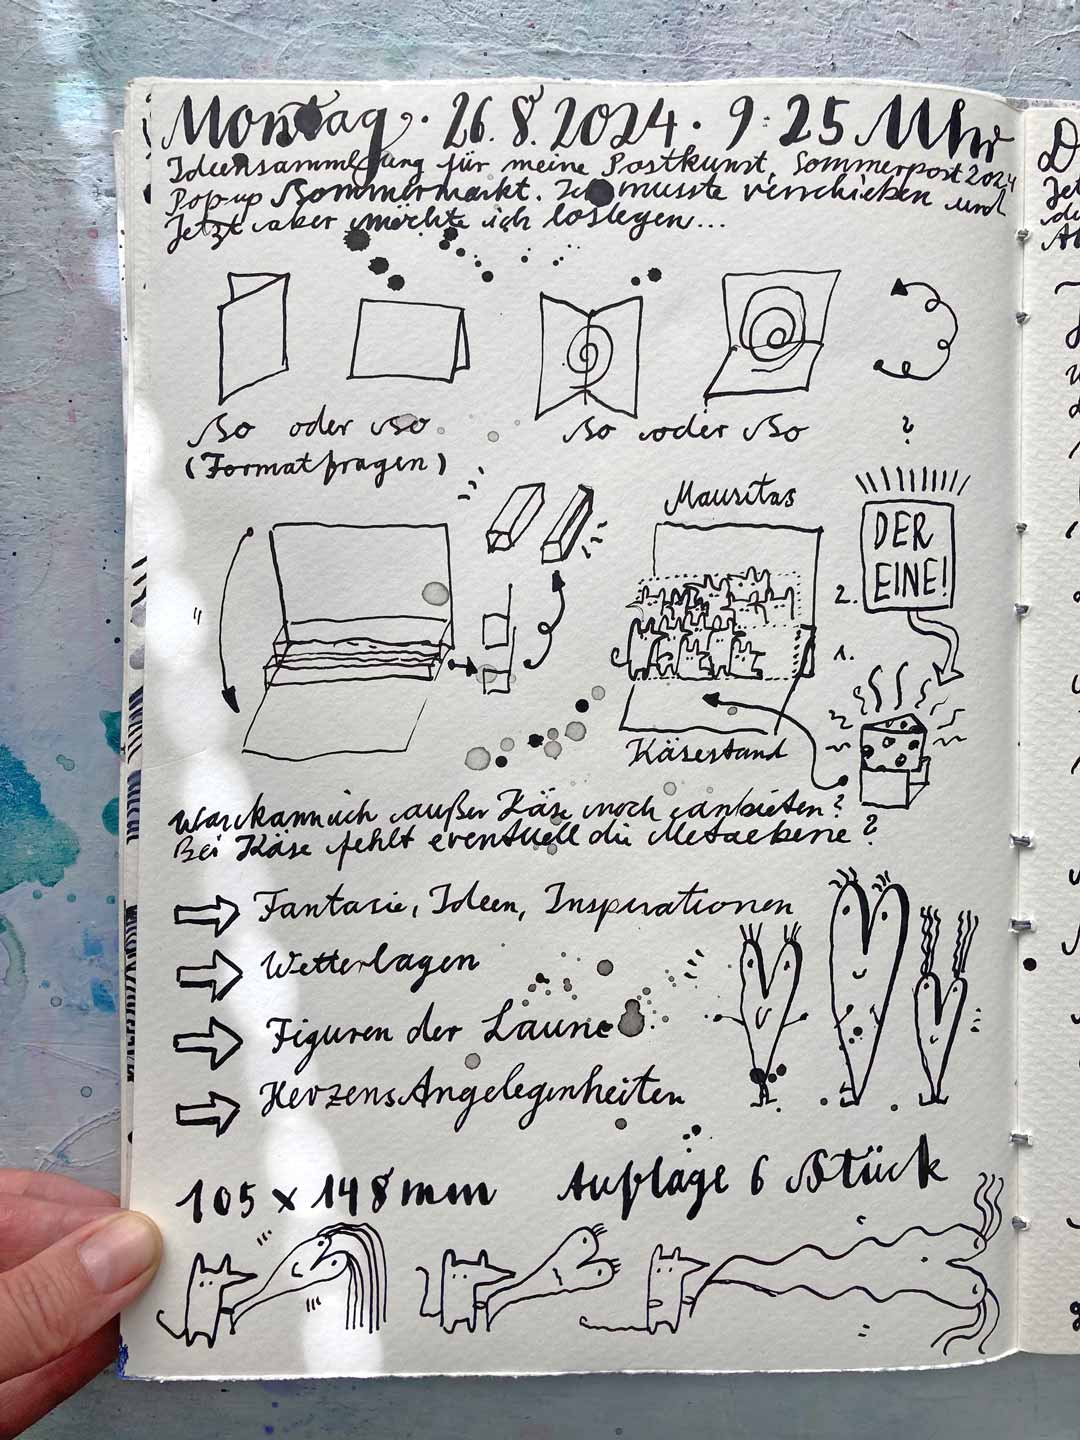 Montag · 26.8.2024 · 9:25 Uhr
Ideensammlung für meine Postkunst, Sommerpost 2024
Pop-up Sommermarkt. Ich musste verschieben und
Jetzt aber möchte ich loslegen...
So oder So
So oder So
?
(Formatfragen)
Mauritas
DER
EINE!
2.
1.
Käsestand
Was kann ich außer Käse noch anbieten?
Bei Käse fehlt eventuell die Metaebene?
Fantasie, Ideen, Inspirationen
Wetterlagen
Figuren der Laune
HerzensAngelegenheiten
105 x 148 mm Auflage 6 Stück